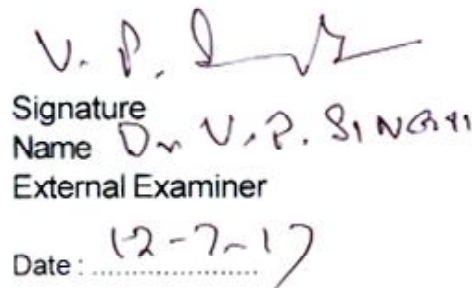 V. P.
Signature
Name Dr V. P. SINGH
External Examiner
Date : 12-7-17